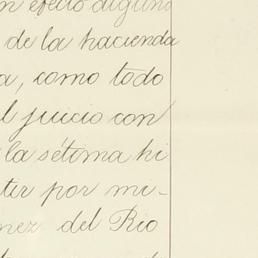 n efecto alguno
de la hacienda
a, como todo
l juicio con
la sétima hi
tir por mi-
nez del Rio